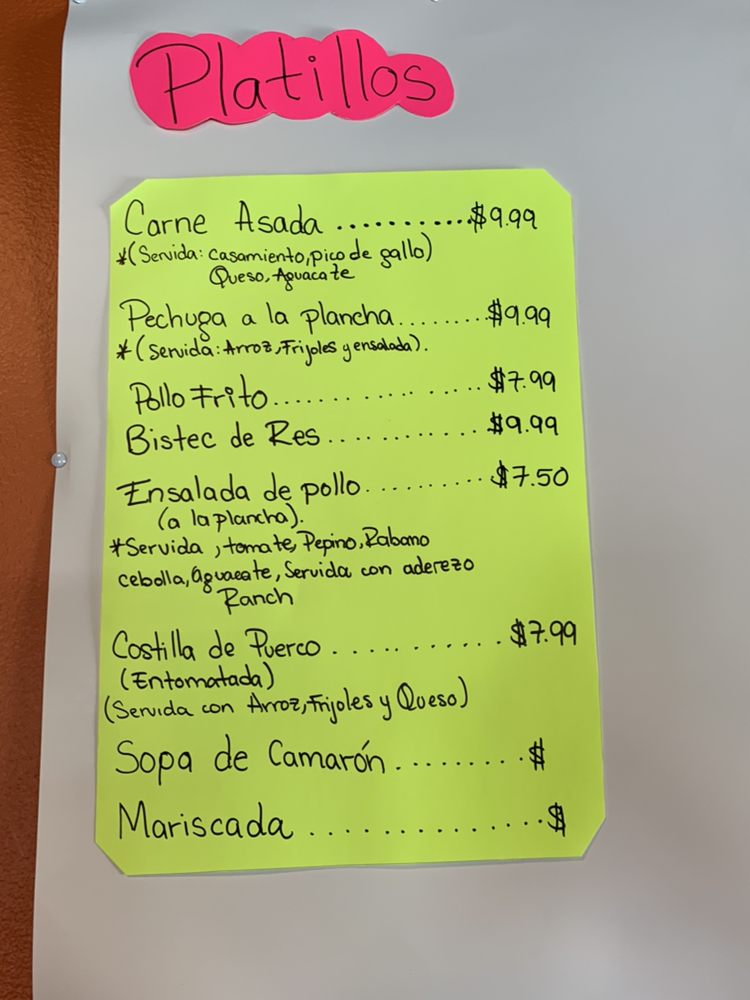 Platillos
Carne Asada ........... $9.99
*(Servida: casamiento, pico de gallo)
Queso, Aguacate
Pechuga a la plancha ........ $9.99
*(Servida: Arroz, Frijoles y ensalada).
Pollo Frito .................. $7.99
Bistec de Res ............ $9.99
Ensalada de pollo .......... $7.50
(a la plancha).
*Servida , tomate, Pepino, Rabano
cebolla, aguacate, Servida con aderezo
Ranch
Costilla de Puerco ........... $7.99
(Entomatada)
(Servida con Arroz, Frijoles y Queso)
Sopa de Camarón ......... $
Mariscada .............. $